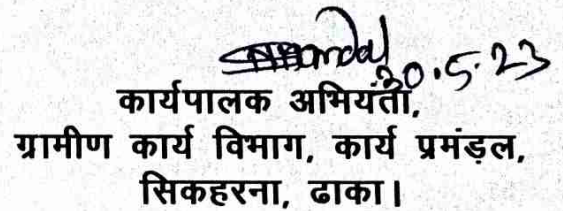 20.5.23
कार्यपालक अभियंता,
ग्रामीण कार्य विभाग, कार्य प्रमंड़ल,
सिकहरना, ढाका।